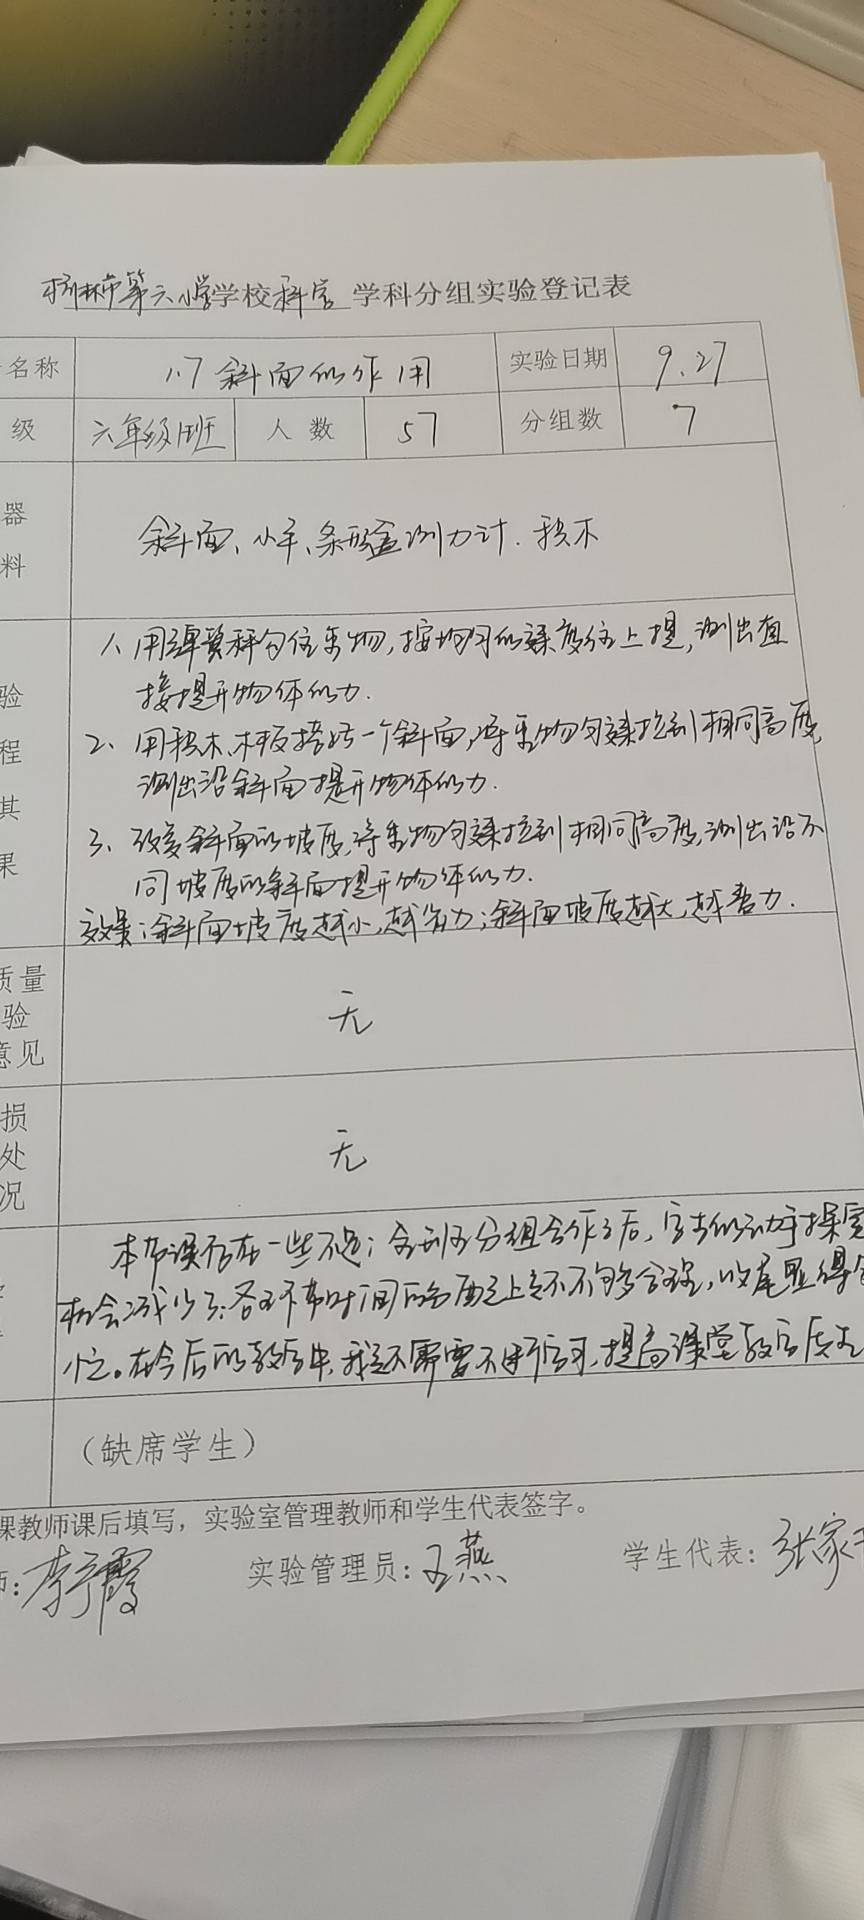 第六小学学校科学 学科分组实验登记表
名称 1.7 斜面的作用 实验日期 9.27
级 六年级1班 人数 57 分组数 7
器
料
斜面、小车、条形盒测力计、积木
1、用弹簧秤勾住重物,按均匀的速度往上提,测出直
接提升物体的力.
验
2、用积木、木板搭好一个斜面,将重物匀速拉到相同高度,
程
测出沿斜面提升物体的力.
其
3、改变斜面的坡度,将重物匀速拉到相同高度,测出沿不
果
同坡度的斜面提升物体的力.
效果:斜面坡度越小,越省力;斜面坡度越大,越费力.
质量
验
意见
无
损
处
况
无
本节课存在一些不足:分组合作之后,学生的动手探究
机会减少了;各环节时间的分配之上还不够合理,收尾显得仓
忙。在今后的教学中,我还需要不断学习,提高课堂教学质
(缺席学生)
课教师课后填写,实验室管理教师和学生代表签字。
师: 李 霞 实验管理员:王燕 学生代表:张家